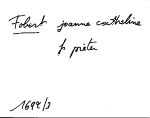 Fobert joanne catheline
fs pieter
1694/3